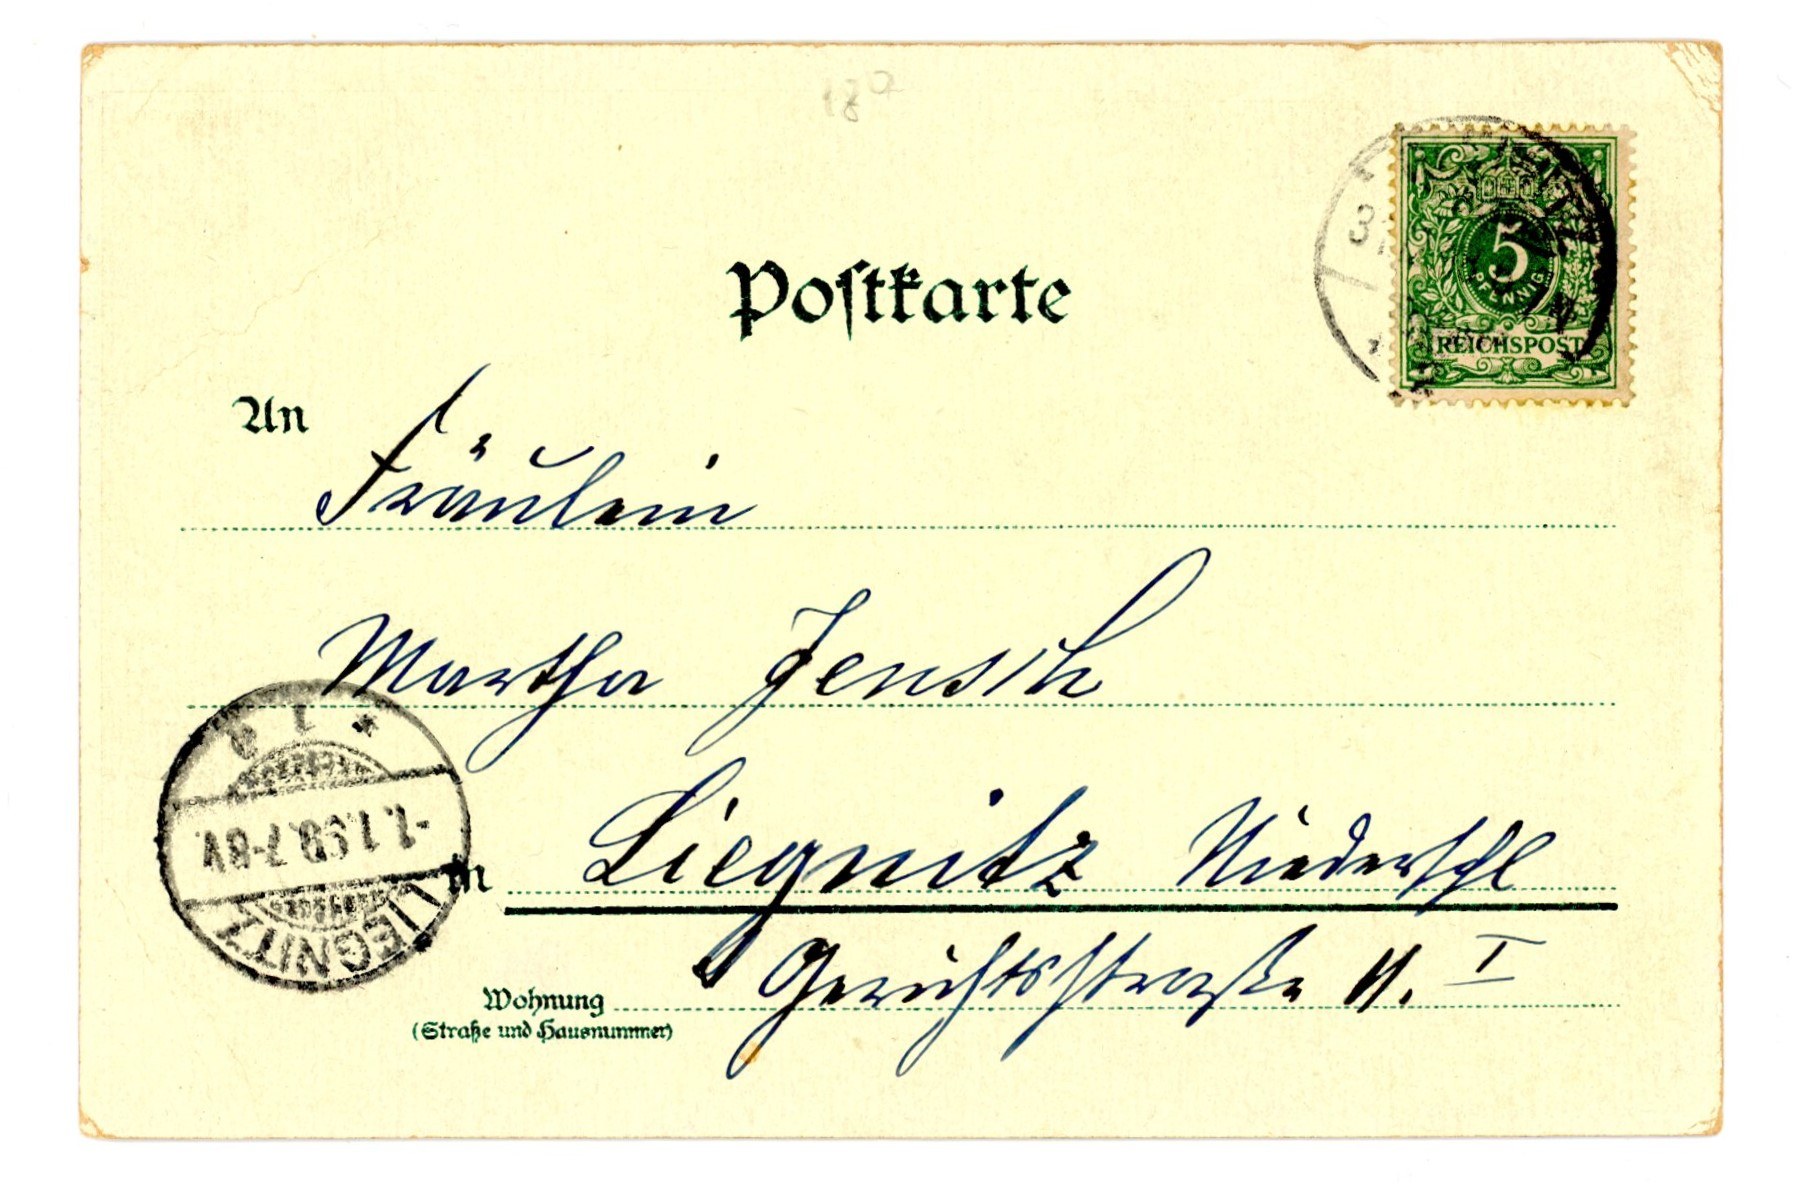 Postkarte
5
PFENNIG
REICHSPOST
An
Fräulein
Martha Jensch
in Liegnitz Niederschl
Wohnung Gerichtsstraße 11. I
(Straße und Hausnummer)
* 1 a
-1.1.98.7-8V.
LIEGNITZ